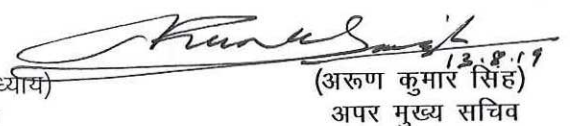 13.8.19
ध्याय) (अरूण कुमार सिंह)
अपर मुख्य सचिव